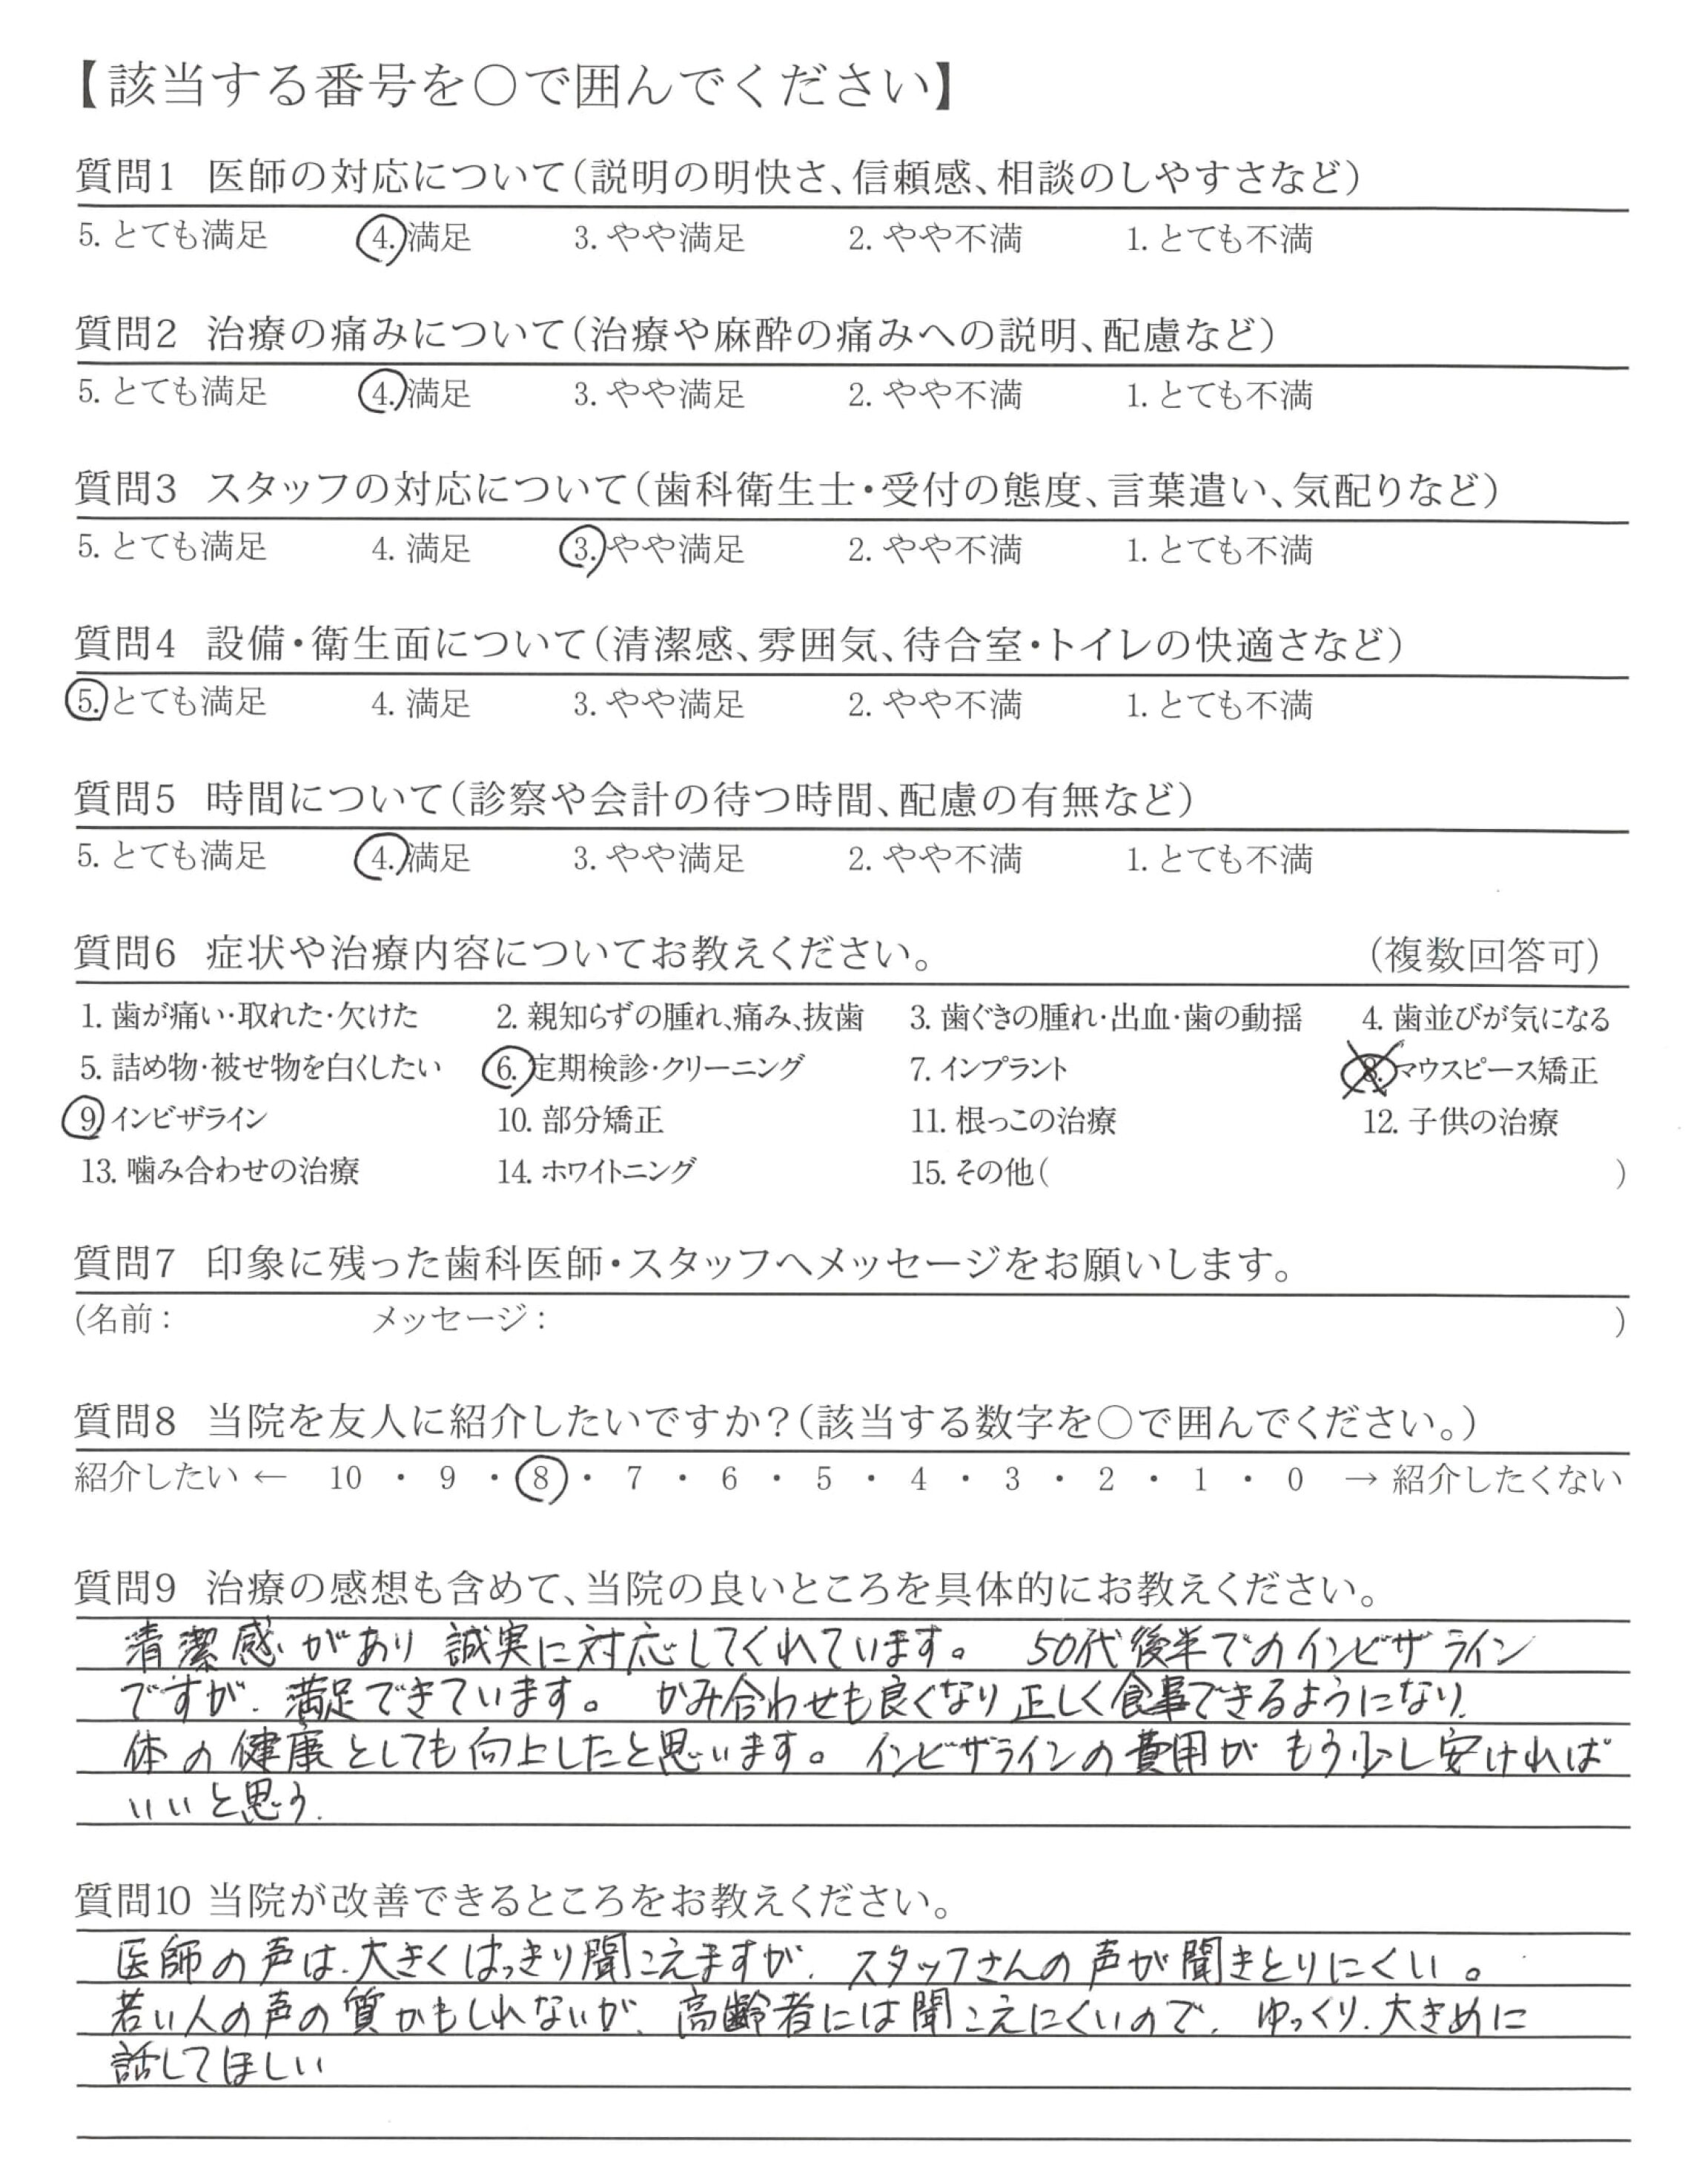 【該当する番号を○で囲んでください】
質問1 医師の対応について(説明の明快さ、信頼感、相談のしやすさなど)
5. とても満足 4. 満足 3. やや満足 2. やや不満 1. とても不満
質問2 治療の痛みについて(治療や麻酔の痛みへの説明、配慮など)
5. とても満足 4. 満足 3. やや満足 2. やや不満 1. とても不満
質問3 スタッフの対応について(歯科衛生士・受付の態度、言葉遣い、気配りなど)
5. とても満足 4. 満足 3. やや満足 2. やや不満 1. とても不満
質問4 設備・衛生面について(清潔感、雰囲気、待合室・トイレの快適さなど)
5. とても満足 4. 満足 3. やや満足 2. やや不満 1. とても不満
質問5 時間について(診察や会計の待つ時間、配慮の有無など)
5. とても満足 4. 満足 3. やや満足 2. やや不満 1. とても不満
質問6 症状や治療内容についてお教えください。 (複数回答可)
1. 歯が痛い・取れた・欠けた 2. 親知らずの腫れ、痛み、抜歯 3. 歯ぐきの腫れ・出血・歯の動揺 4. 歯並びが気になる
5. 詰め物・被せ物を白くしたい 6. 定期検診・クリーニング 7. インプラント 8. マウスピース矯正
9. インビザライン 10. 部分矯正 11. 根っこの治療 12. 子供の治療
13. 噛み合わせの治療 14. ホワイトニング 15. その他( )
質問7 印象に残った歯科医師・スタッフへメッセージをお願いします。
(名前: メッセージ: )
質問8 当院を友人に紹介したいですか?(該当する数字を○で囲んでください。)
紹介したい ← 10 ・ 9 ・ 8 ・ 7 ・ 6 ・ 5 ・ 4 ・ 3 ・ 2 ・ 1 ・ 0 → 紹介したくない
質問9 治療の感想も含めて、当院の良いところを具体的にお教えください。
清潔感があり 誠実に対応してくれています。 50代後半でのインビザライン
ですが、満足できています。 かみ合わせも良くなり 正しく食事できるようになり、
体の健康としても向上したと思います。 インビザラインの費用が もう少し安ければ
いいと思う.
質問10 当院が改善できるところをお教えください。
医師の声は、大きくはっきり聞こえますが、スタッフさんの声が聞きとりにくい。
若い人の声の質かもしれないが、高齢者には聞こえにくいので、ゆっくり、大きめに
話してほしい